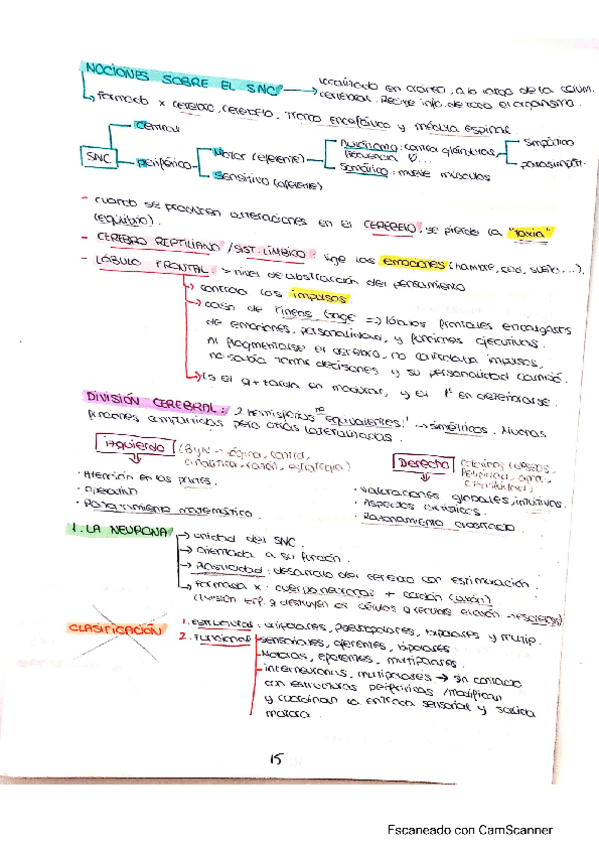 NOCIONES SOBRE EL SNC → localizado en cráneo, a lo largo de la colum.
cerebral. Recibe info. de todo el organismo.
↳ formado x cerebro, cerebelo, tronco encefálico y médula espinal
SNC
central
periférico
Motor (eferente)
Sensitivo (aferente)
Autónomo: control glándulas,
frecuencia ♡...
Somático: mueve músculos
simpático
parasimpát.
- cuando se producen alteraciones en el CEREBELO, se pierde la "taxia"
(equilibrio).
- CEREBRO REPTILIANO / SIST. LÍMBICO: rige las emociones (hambre, sed, sueño...).
- LÓBULO FRONTAL: > nivel de abstracción del pensamiento
↳ controla los impulsos.
↳ caso de Fineas Gage => lóbulos frontales encargados
de emociones, personalidad, y funciones ejecutivas.
Al fragmentarse el cerebro, no controlaba impulsos,
no sabía tomar decisiones y su personalidad cambió.
↳ Es el q + tarda en madurar, y el 1º en deteriorarse.
DIVISIÓN CEREBRAL: 2 hemisferios "equivalentes" → simétricos. Algunas
funciones compartidas pero otras lateralizadas.
Izquierdo (ByN → lógica, control,
razón, estrategia)
· Atención en las partes.
· Operativo
· Razonamiento matemático.
Derecho
creatividad)
· Valoraciones globales, intuitivas.
· Aspectos
· Razonamiento
1. LA NEURONA
→ unidad del SNC.
→ orientada a su función.
→ Plasticidad: desarrollo del cerebro con estimulación.
→ formada x: cuerpo neuronal + cordón (axón)
CLASIFICACIÓN
1. estructural: unipolares, pseudopolares, bipolares y multip.
2. Funcional
- sensoriales, aferentes, bipolares
- Motoras, eferentes, multipolares.
- interneuronas, multipolares → sin contacto
con estructuras periféricas / modifican
y coordinan la entrada sensorial y salida
motora.
15
Escaneado con CamScanner